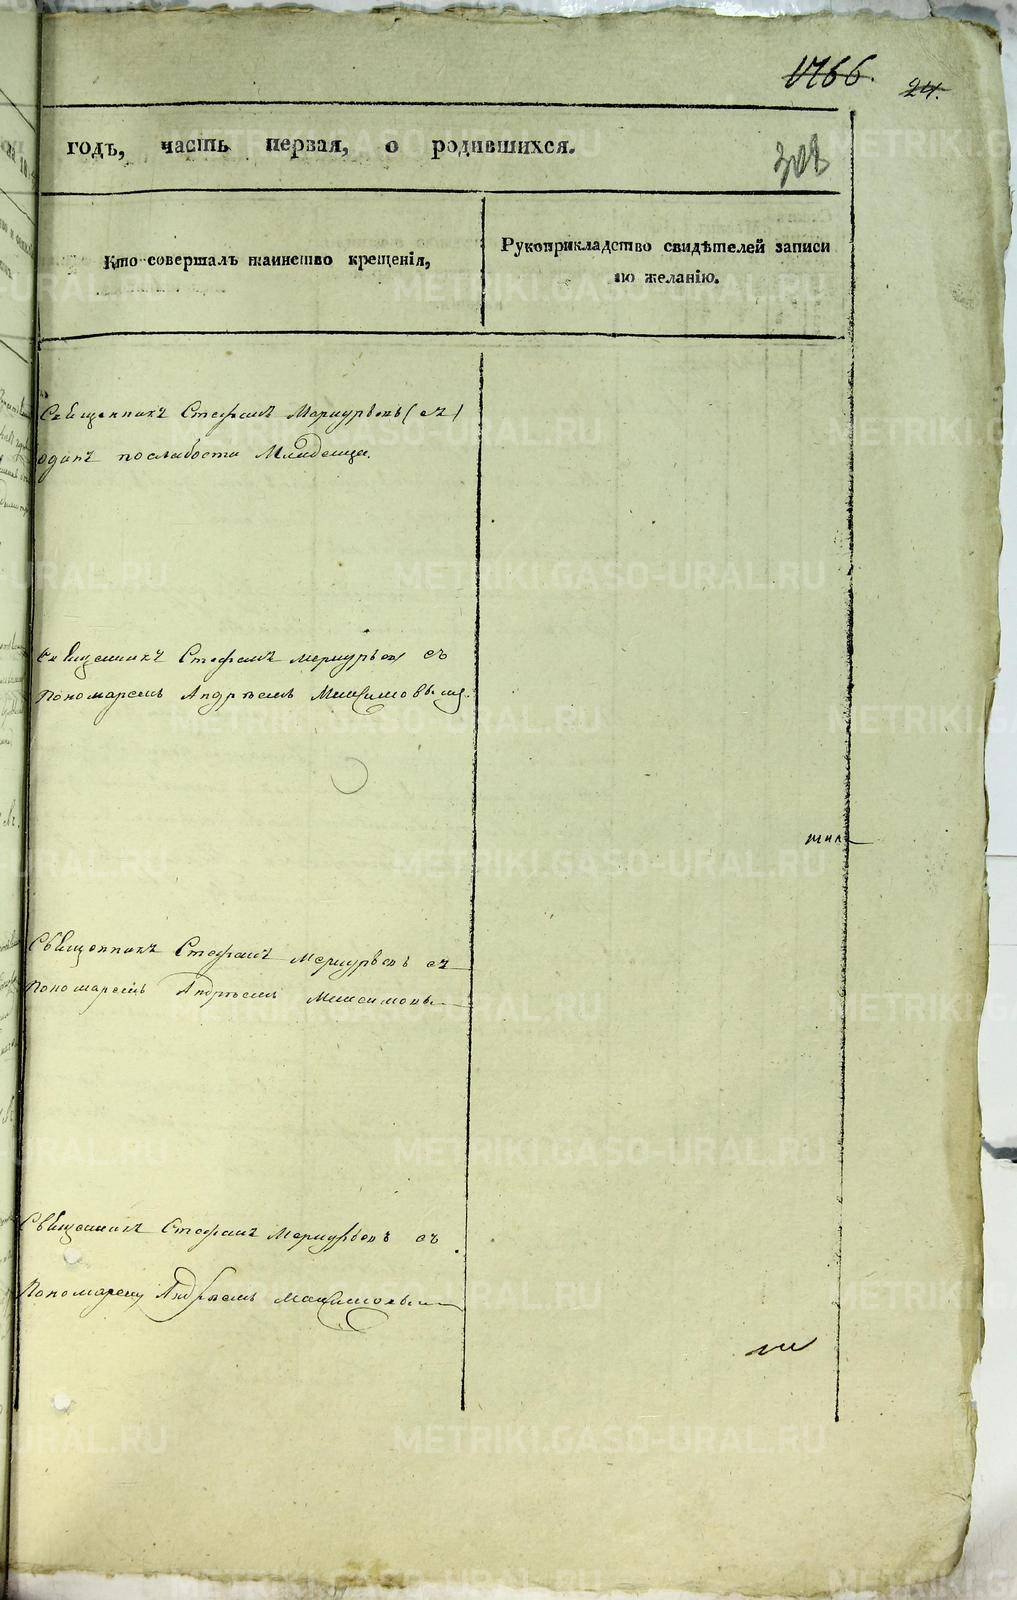 1766.
24.
годъ, часть первая, о родившихся.
308
Кто совершалъ таинство крещенія,
Рукоприкладство свидѣтелей записи
по желанію.
Священникъ Стефанъ Меркурьевъ (съ)
одинъ послабости Младенца.
Священникъ Стефанъ Меркурьев съ
Пономаремъ Андрѣемъ Максимовымъ.
Священникъ Стефанъ Меркурьевъ съ
Пономаремъ Андрѣемъ Максимовым
Священникъ Стефанъ Меркурьевъ съ
Пономаремъ Андрѣемъ Максимовым
METRIKI.GASO-URAL.RU